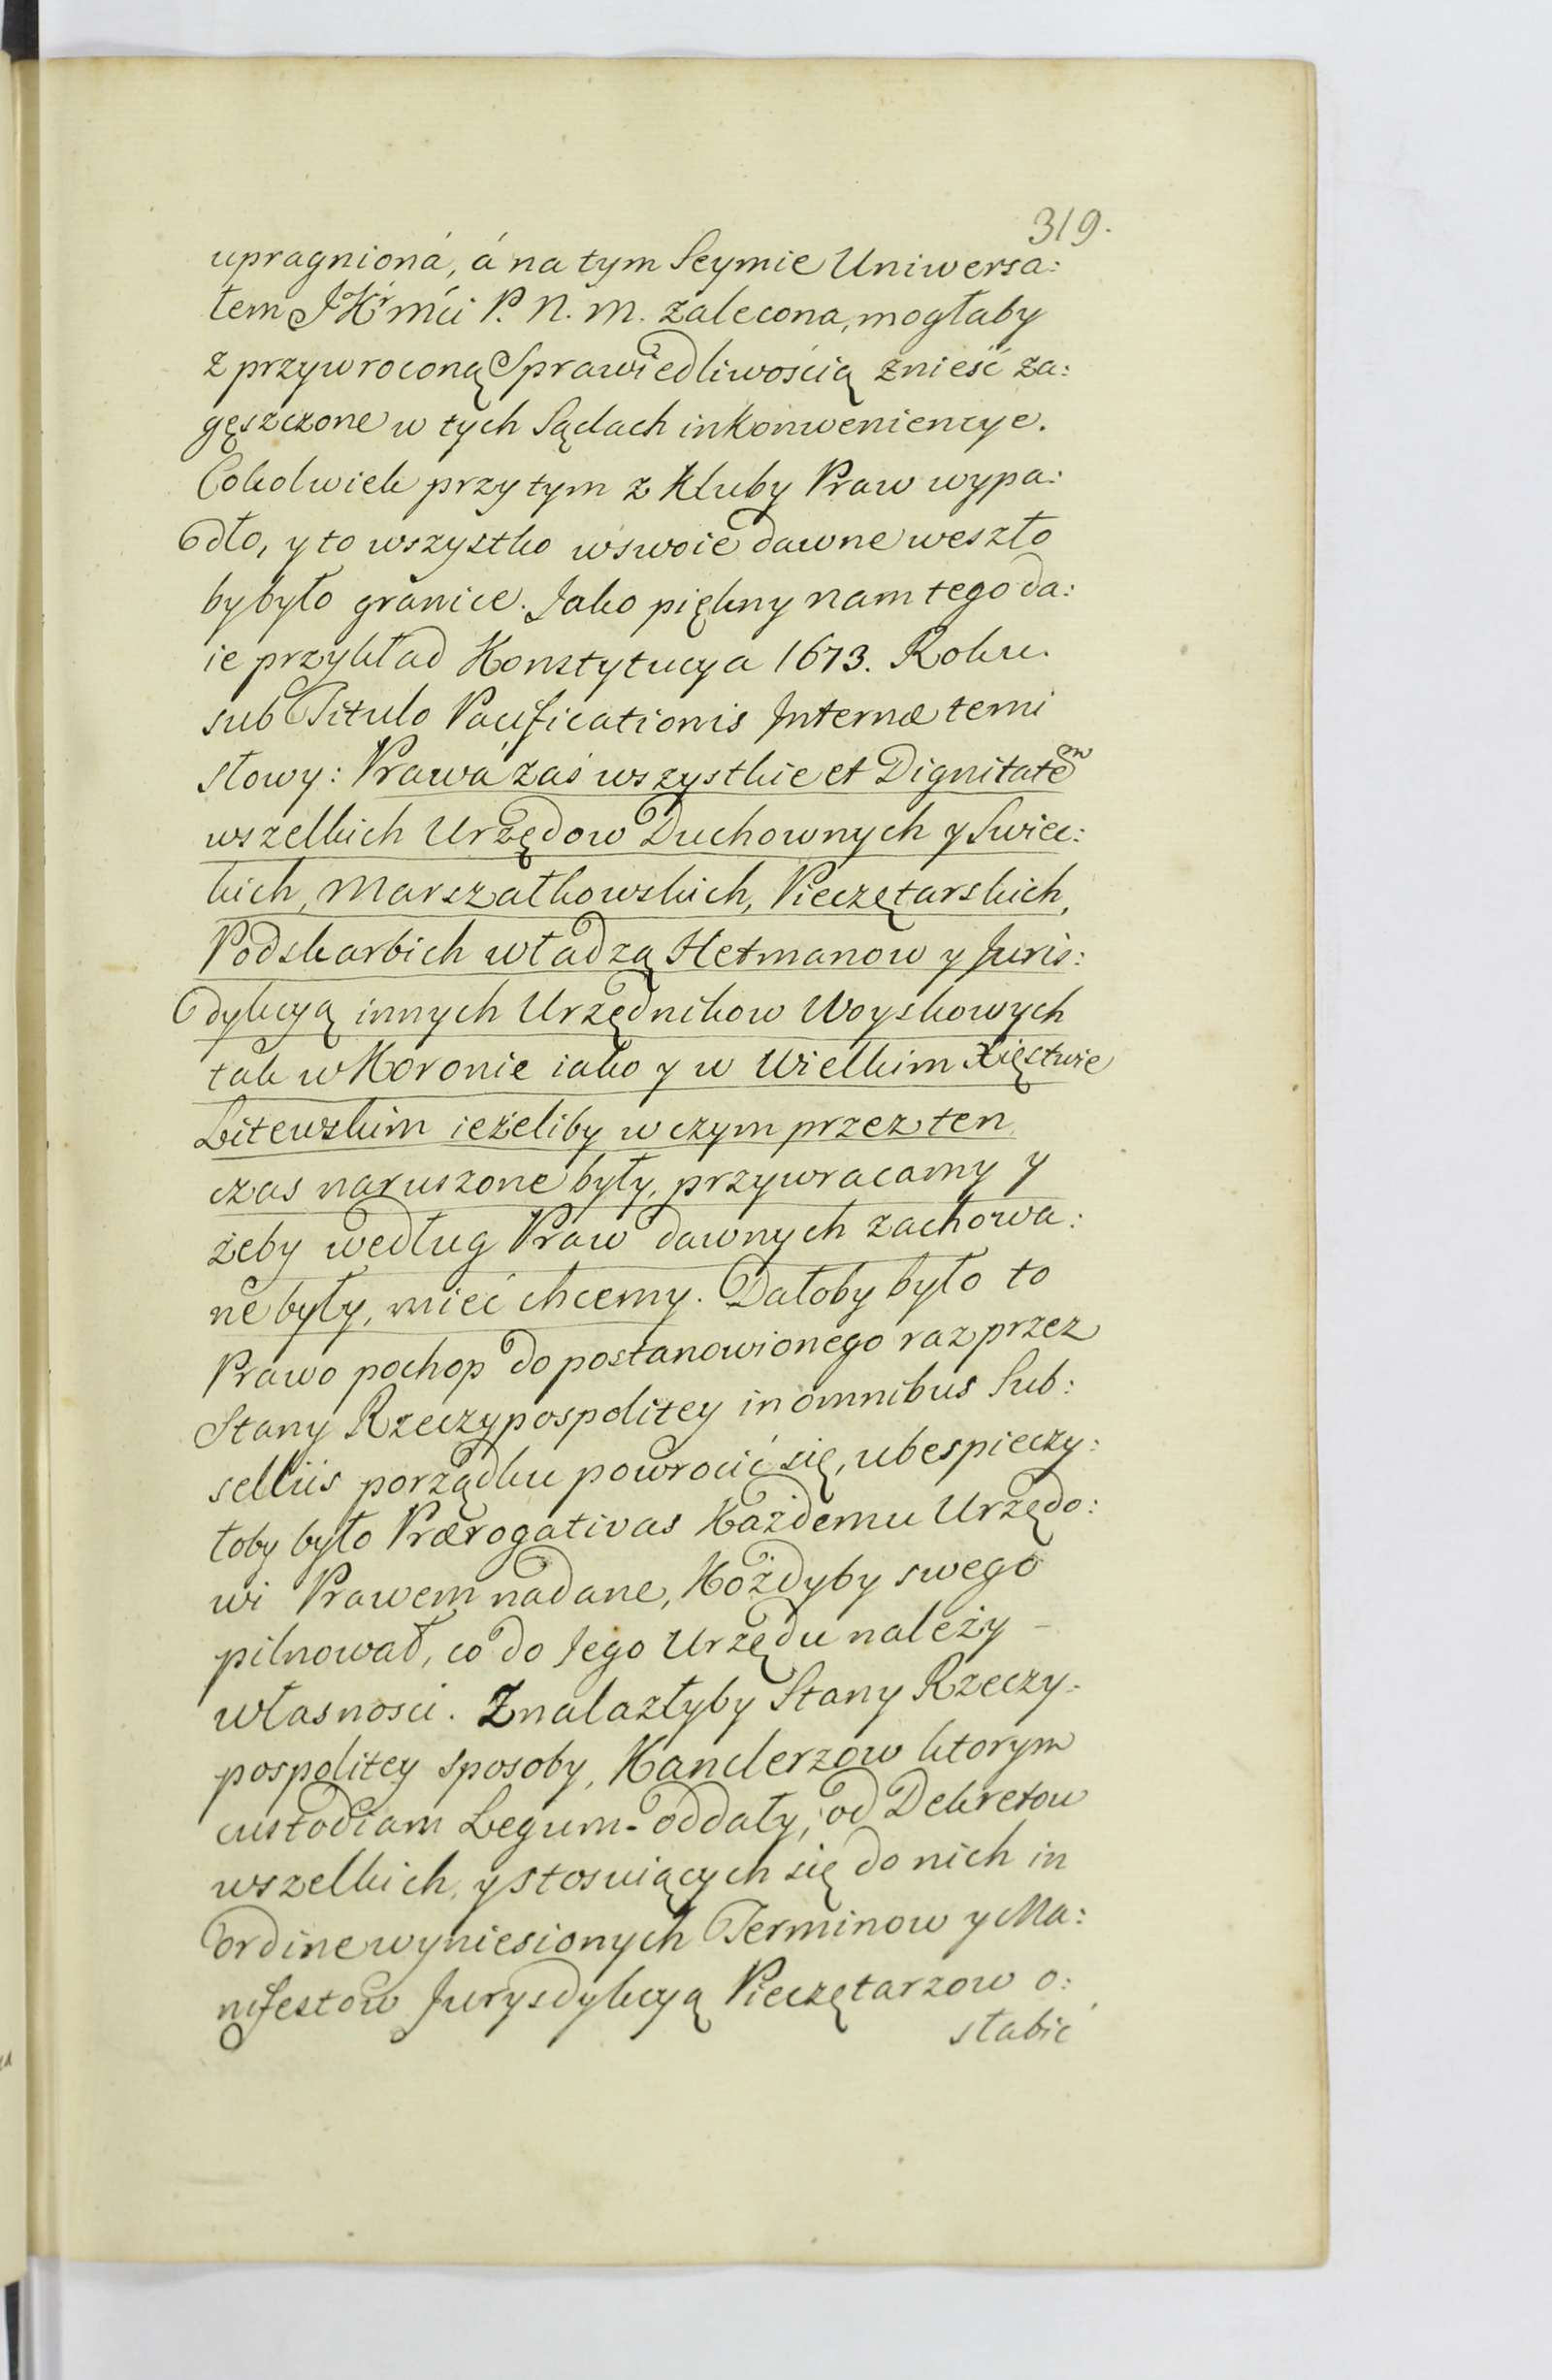 319.
upragnioná, á na tym Seymie Uniwersa:
łem JKr̃mći P. N. M. zalecona, mogłaby
z przywroconą Sprawiedliwością znieść za:
gęszczone w tych Sądach inkonweniencye.
Cokolwiek przy tym z kluby Praw wypa:
dło, y to wszystko w swoie dawne weszło
by było granice. Jako piękny nam tego da:
ie przykład Konstytucya 1673. Roku.
sub Titulo Pacificationis Internæ temi
słowy: Prawá zaś wszystkie et Dignitatem
wszelkich Urzędow Duchownych y Swiec:
kich, Marszałkowskich, Pieczętarskich,
Podskarbich władzą Hetmanow y Juris:
dykcyą innych Urzędnikow Woyskowych
tak w Koronie iako y w Wielkim Xięstwie
Litewskim ieżeliby w czym przez ten
czas naruszone były, przywracamy y
żeby według Praw dawnych zachowa:
ne były, mieć chcemy. Dałoby było to
Prawo pochop do postanowionego raz przez
Stany Rzeczypospolitey in omnibus Sub:
selliis porządku powrocić się, ubespieczy:
łoby było Prærogativas Każdemu Urzędo:
wi Prawem nadane, Kożdyby swego
pilnował, co do Jego Urzędu należy
własnosci. Znalazłyby Stany Rzeczy-
pospolitey sposoby, Kanclerzow ktorym
custodiam Legum oddały, od Dekretow
wszelkich, y stosuiących się do nich in
ordine wyniesionych Terminow y Ma:
nifestow Jurysdykcyą Pieczętarzow o:
słabić